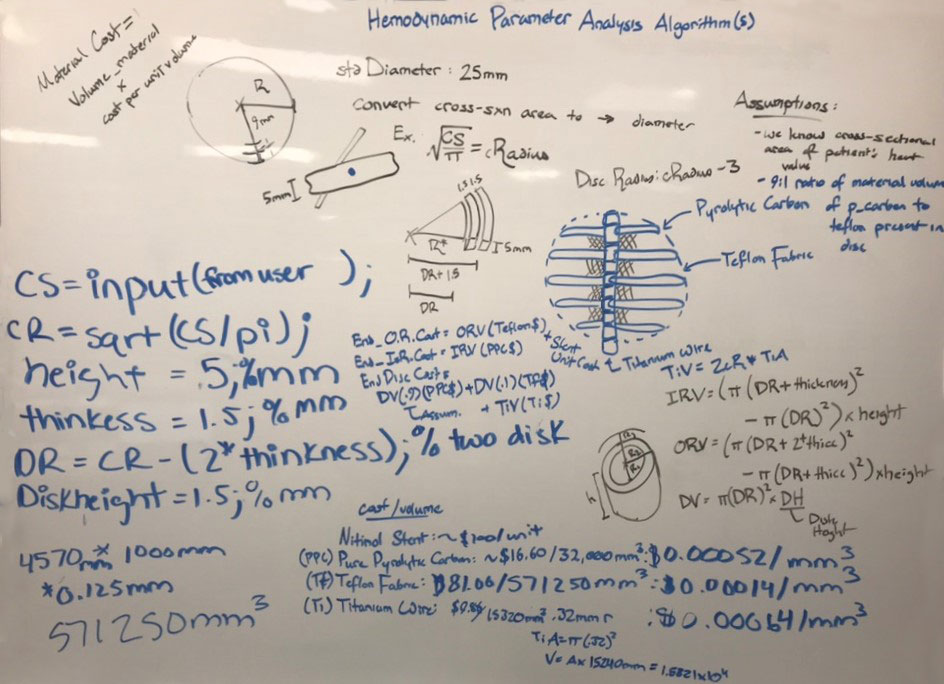 Hemodynamic Parameter Analysis Algorithm(s)
Material Cost =
Volume_material
x
cost per unit volume
R
9mm
std Diameter : 25mm
convert cross-sxn area to → diameter
Ex. √CS/π = cRadius
5mm
Disc Radius: cRadius -3
Assumptions:
- we know cross-sectional
area of patient's heart
valve
- 9:1 ratio of material volume
of p_carbon to
teflon present in
disc
1.5 1.5
R*
5mm
DR+1.5
DR
Pyrolytic Carbon
Teflon Fabric
CS=input(from user );
CR=sqrt(CS/pi);
height = 5;%mm
thinkess = 1.5;% mm
DR = CR - (2*thinkness);% two disk
Diskheight = 1.5;% mm
End_O.R. Cost = ORV(Teflon$)
End_I.R. Cost = IRV(PPC$)
End Disc Costs
DV(.9)(PPC$)+DV(.1)(TF$)
Assum. + TiV(Ti$)
+ Stent
Unit Cost
Titanium Wire
TiV = 2cR * TiA
IRV = (π(DR+thickness)²
- π(DR)²) x height
ORV = (π(DR+2*thicc)²
- π(DR+thicc)²) x height
DV = π(DR)² x DH
Disk
Height
R2
R1
h
cost/volume
Nitinol Stent: ~$100/unit
(PPC) Pure Pyrolytic Carbon: ~$16.60/32,000mm³: $0.00052/mm³
(TF) Teflon Fabric: $81.06/571250mm³: $0.00014/mm³
(Ti) Titanium Wire: 15240mm .32mm r : $0.00064/mm³
TiA=π(.32)²
V= A x 15240mm = 1.5821x10⁴
4570mm * 1000mm
*0.125mm
571250mm³